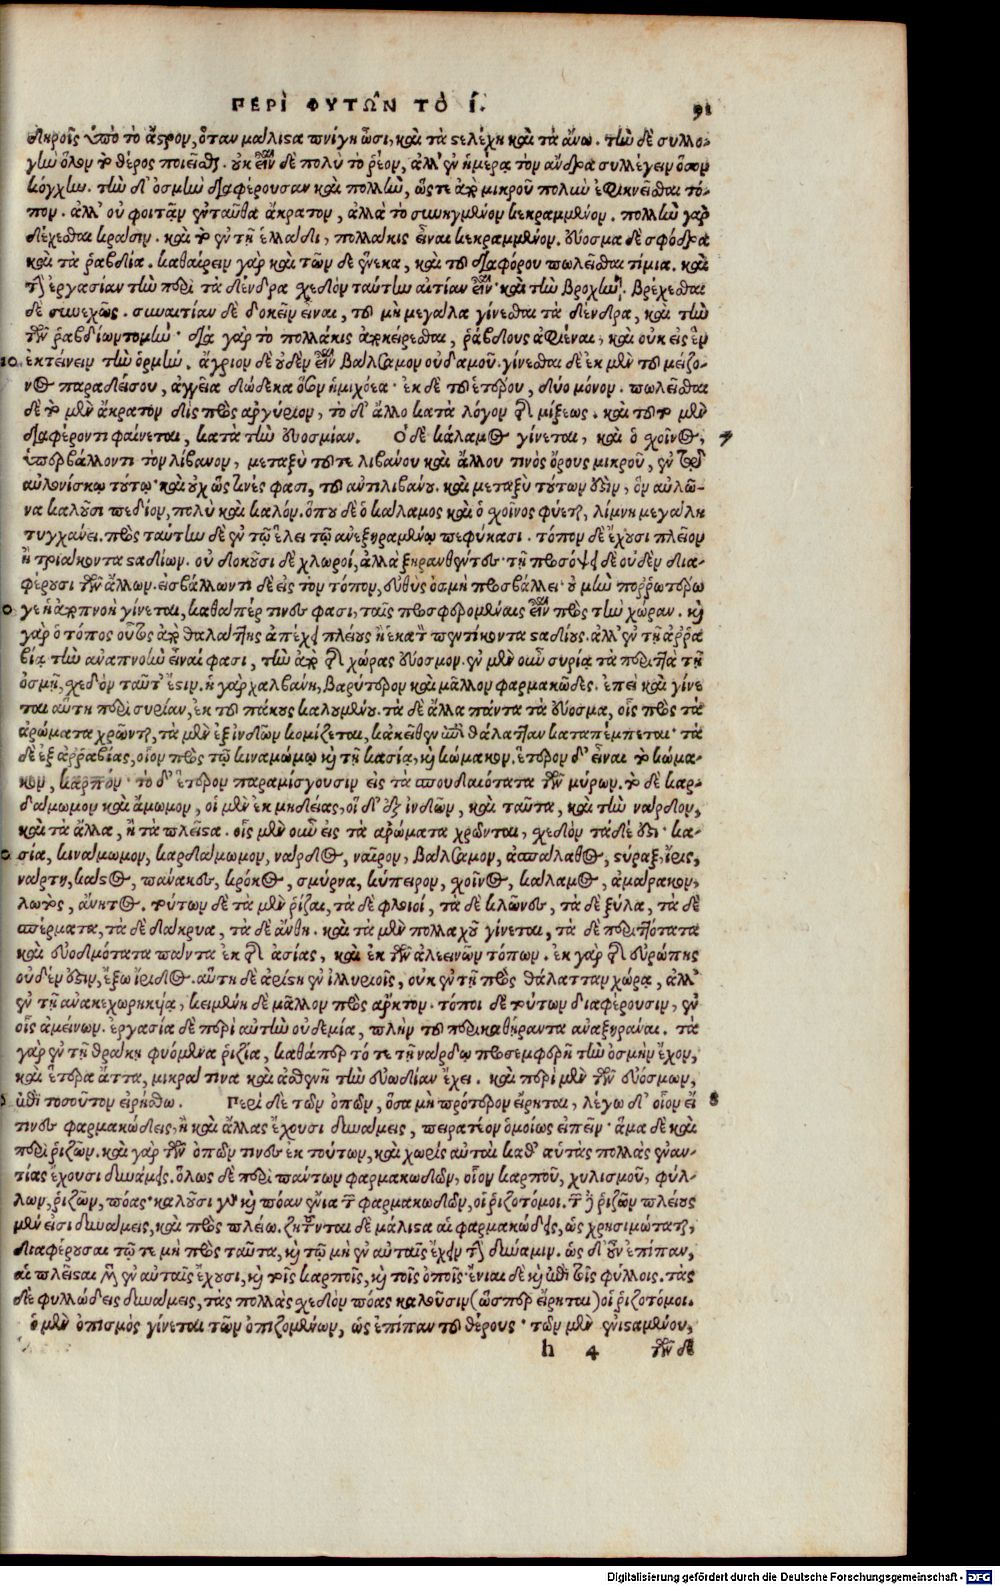 ΠΕΡῚ ΦΥΤΩ͂Ν ΤῸ Ι΄. 91
σιδηροῖς ὑπὸ τὸ ἄστρον, ὅταν μάλιστα πνίγη ὦσι, καὶ τὰ στελέχη καὶ τὰ ἄνω. τὴν δὲ συλλο-
γὴν ὅλον τὸ θέρος ποιεῖσθαι. οὐκ εἶναι δὲ πολὺ τὸ ῥέον, ἀλλ' ἐν ἡμέρᾳ τὸν ἄνδρα συλλέγειν ὅσον
κόγχην. τὴν δ' ὀσμὴν διαφέρουσαν καὶ πολλὴν, ὥστε ἀπὸ μικροῦ πολὺν ἐφικνεῖσθαι τό-
πον. ἀλλ' οὐ φοιτᾷν ἐνταῦθα ἄκρατον, ἀλλὰ τὸ συνηγμένον κεκραμμένον. πολλὴν γὰρ
δέχεσθαι κρᾶσιν. καὶ τὸ ἐν τῇ ἑλλάδι, πολλάκις εἶναι κεκραμμένον. εὔοσμα δὲ σφόδρα
καὶ τὰ ῥαβδία. καθαίρειν γὰρ καὶ τῶν δε ἕνεκα, καὶ τοῦ διαφόρου πωλεῖσθαι τίμια. καὶ
τὴν ἐργασίαν τὴν περὶ τὰ δένδρα σχεδὸν ταύτην αἰτίαν εἶναι· καὶ τὴν βροχὴν. βρέχεσθαι
δὲ συνεχῶς. συναιτίαν δὲ δοκεῖν εἶναι, τοῦ μὴ μεγάλα γίνεσθαι τὰ δένδρα, καὶ τὴν
τῶν ῥαβδίων τομὴν· διὰ γὰρ τὸ πολλάκις ἀποκείρεσθαι, ῥάβδους ἀφιέναι, καὶ οὐκ εἰς ἓν
10 ἐκτείνειν τὴν ὁρμὴν. ἄγριον δὲ οὐδὲν εἶναι βάλσαμον οὐδαμοῦ. γίνεσθαι δὲ ἐκ μὲν τοῦ μείζο-
νος παραδείσου, ἀγγεῖα δώδεκα ὅσον ἡμιχόεα· ἐκ δὲ τοῦ ἑτέρου, δύο μόνον. πωλεῖσθαι
δὲ τὸ μὲν ἄκρατον δὶς πρὸς ἀργύριον, τὸ δ' ἄλλο κατὰ λόγον τῆς μίξεως. καὶ τοῦτο μὲν
διαφέροντι φαίνεται, κατὰ τὴν εὐοσμίαν. Ὁ δὲ κάλαμος γίνεται, καὶ ὁ σχοῖνος, 7
ὑπερβάλλοντι τὸν λίβανον, μεταξὺ τοῦ τε λιβάνου καὶ ἄλλου τινὸς ὄρους μικροῦ, ἐν τῷ
αὐλονίσκῳ τούτῳ· καὶ οὐχ ὥς τινές φασι, τοῦ αντιλιβάνου. καὶ μεταξὺ τούτων ἐστὶν, ὃν αὐλῶ-
να καλοῦσι πεδίον, πολὺ καὶ καλόν. ὅπου δὲ ὁ κάλαμος καὶ ὁ σχοῖνος φύεται, λίμνη μεγάλη
τυγχάνει. πρὸς ταύτην δὲ ἐν τῷ ἕλει τῷ ἀνεξηραμμένῳ πεφύκασι. τόπον δὲ ἔχουσι πλεῖον
ἢ τριάκοντα σταδίων. οὐ δοκοῦσι δὲ χλωροί, ἀλλὰ ξηρανθέντες· τῇ προσόψει δὲ οὐδὲν δια-
φέρουσι τῶν ἄλλων. ἐσβάλλοντι δὲ εἰς τὸν τόπον, εὐθὺς ὀσμὴ προσβάλλει· οὐ μὴν πορρωτέρω
γε ἡ ἀποπνοὴ γίνεται, καθάπέρ τινές φασι, ταῖς προσφερομέναις εἶναι πρὸς τὴν χώραν. καὶ
γὰρ ὁ τόπος οὗτος ἀπὸ θαλάττης ἀπέχει πλείους ἢ ἑκατὸν πεντήκοντα σταδίους. ἀλλ' ἐν τῇ ἀρρα
βίᾳ τὴν ἀναπνοὴν εἶναί φασι, τὴν ἀπὸ τῆς χώρας εὔοσμον. ἐν μὲν οὖν συρίᾳ τὰ περιττὰ τῇ
ὀσμῇ, σχεδὸν ταῦτ' ἔστιν. ἡ γὰρ χαλβάνη, βαρύτερον καὶ μᾶλλον φαρμακῶδες. ἐπεὶ καὶ γίνε
ται αὕτη περὶ συρίαν, ἐκ τοῦ πάκους καλουμένου. τὰ δὲ ἄλλα πάντα τὰ εὔοσμα, οἷς πρὸς τὰ
ἀρώματα χρῶνται, τὰ μὲν ἐξ ἰνδῶν κομίζεται, κἀκεῖθεν ἐπὶ θάλατταν καταπέμπεται· τὰ
δὲ ἐξ ἀρραβίας, οἷον πρὸς τῷ κιναμώμῳ καὶ τῇ κασίᾳ, καὶ κώμακον. ἕτερον δ' εἶναι τὸ κώμα-
κον, καρπόν· τὸ δ' ἕτερον παραμίσγουσιν εἰς τὰ σπουδαιότατα τῶν μύρων. τὸ δὲ καρ-
δάμωμον καὶ ἄμωμον, οἱ μὲν ἐκ μηδείας, οἱ δ' ἐξ ἰνδῶν, καὶ ταῦτα, καὶ τὴν νάρδον,
καὶ τὰ ἄλλα, ἢ τὰ πλεῖστα. οἷς μὲν οὖν εἰς τὰ ἀρώματα χρῶνται, σχεδὸν τάδε ἐστὶ· κα-
σία, κινάμωμον, καρδάμωμον, νάρδος, ναῖρον, βάλσαμον, ἀσπάλαθος, στύραξ, ἶρις,
νάρτη, κόστος, πάνακες, κρόκος, σμύρνα, κύπειρον, σχοῖνος, κάλαμος, ἀμάρακον,
λωτὸς, ἄνητος. τούτων δὲ τὰ μὲν ῥίζαι, τὰ δὲ φλοιοί, τὰ δὲ κλῶνες, τὰ δὲ ξύλα, τὰ δὲ
σπέρματα, τὰ δὲ δάκρυα, τὰ δὲ ἄνθη. καὶ τὰ μὲν πολλαχοῦ γίνεται, τὰ δὲ περιττότατα
καὶ εὐοσμότατα πάντα ἐκ τῆς ἀσίας, καὶ ἐκ τῶν ἀλεεινῶν τόπων. ἐκ γὰρ τῆς εὐρώπης
οὐδέν ἐστιν, ἔξω ἴριδος. αὕτη δὲ ἀρίστη ἐν ἰλλυριοῖς, οὐκ ἐν τῇ πρὸς θάλατταν χώρᾳ, ἀλλ'
ἐν τῇ ἀνακεχωρηκυίᾳ, κειμένῃ δὲ μᾶλλον πρὸς ἄρκτον. τόποι δὲ τούτων διαφέρουσιν, ἐν
οἷς ἀμείνων. ἐργασία δὲ περὶ αὐτὴν οὐδεμία, πλὴν τοῦ περικαθήραντα ἀναξηρᾶναι. τὰ
γὰρ ἐν τῇ θρᾴκῃ φυόμενα ῥιζία, καθάπερ τό τε τῇ νάρδῳ προσεμφερῆ τὴν ὀσμὴν ἔχον,
καὶ ἕτερα ἄττα, μικρά τινα καὶ ἀσθενῆ τὴν εὐωδίαν ἔχει. καὶ περὶ μὲν τῶν εὐόσμων,
ἐπὶ τοσοῦτον εἰρήσθω. Περὶ δὲ τῶν ὀπῶν, ὅσα μὴ πρότερον εἴρηται, λέγω δ' οἷον εἴ 8
τινες φαρμακώδεις, ἢ καὶ ἄλλας ἔχουσι δυνάμεις, πειρατέον ὁμοίως εἰπεῖν· ἅμα δὲ καὶ
περὶ ῥιζῶν. καὶ γὰρ τῶν ὀπῶν τινες ἐκ τούτων, καὶ χωρὶς αὐταὶ καθ' αὑτὰς πολλὰς ἐναν-
τίας ἔχουσι δυνάμεις. ὅλως δὲ περὶ πάντων φαρμακωδῶν, οἷον καρποῦ, χυλισμοῦ, φύλ-
λων, ῥιζῶν, πόας· καλοῦσι γὰρ καὶ πόαν ἔνια τῶν φαρμακωδῶν, οἱ ῥιζοτόμοι. τῶν δὲ ῥιζῶν πλείους
μέν εἰσι δυνάμεις, καὶ πρὸς πλείω. ζητοῦνται δὲ μάλιστα αἱ φαρμακώδεις, ὡς χρησιμώταται,
διαφέρουσαι τῷ τε μὴ πρὸς ταῦτα, καὶ τῷ μὴ ἐν αὐταῖς ἔχειν τὴν δύναμιν. ὡς δ' οὖν ἐπίπαν,
αἱ πλεῖσται μὲν ἐν αὑταῖς ἔχουσι, καὶ τοῖς καρποῖς, καὶ τοῖς ὀποῖς· ἔνιαι δὲ καὶ ἐπὶ τοῖς φύλλοις. τὰς
δὲ φυλλώδεις δυνάμεις, τὰς πολλὰς σχεδὸν πόας καλοῦσιν (ὥσπερ εἴρηται) οἱ ῥιζοτόμοι.
ὁ μὲν ὀπισμὸς γίνεται τῶν ὀπιζομένων, ὡς ἐπίπαν τοῦ θέρους· τῶν μὲν ἐνισταμένου,
h 4 τῶν δὲ
Digitalisierung gefördert durch die Deutsche Forschungsgemeinschaft - DFG